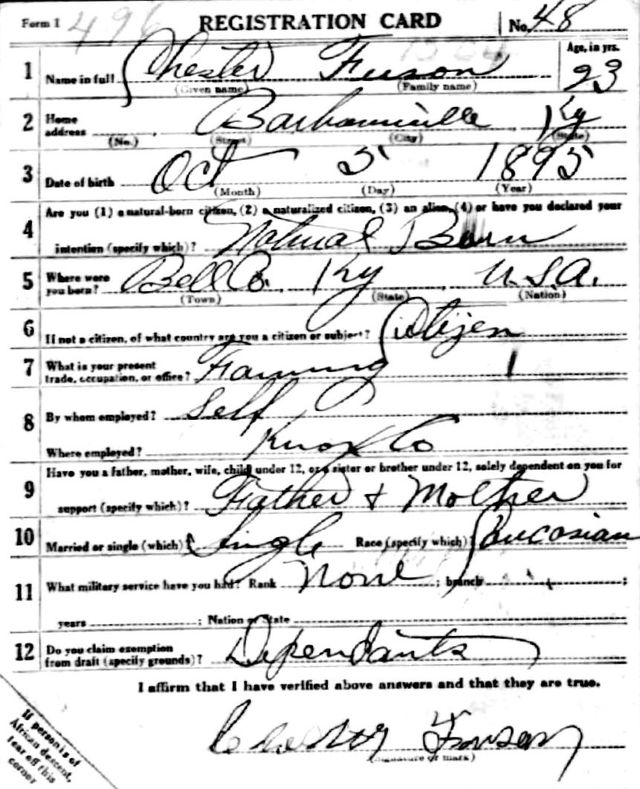 Form 1 496 REGISTRATION CARD No. 48
Age, in yrs.
1 Name in full Chester Fuson 23
(Given name) (Family name)
2 Home address Barbourville Ky
(No.) (Street) (City) (State)
3 Date of birth Oct 5 1895
(Month) (Day) (Year)
4 Are you (1) a natural-born citizen, (2) a naturalized citizen, (3) an alien, (4) or have you declared your
intention (specify which)? Natural Born
5 Where were you born? Bell Co. Ky U.S.A.
(Town) (State) (Nation)
6 If not a citizen, of what country are you a citizen or subject? Citizen
7 What is your present trade, occupation, or office? Farming
8 By whom employed? Self
Where employed? Knox Co
9 Have you a father, mother, wife, child under 12, or a sister or brother under 12, solely dependent on you for
support (specify which)? Father & Mother
10 Married or single (which)? Single Race (specify which)? Caucasian
11 What military service have you had? Rank None ; branch ;
years ; Nation or State
12 Do you claim exemption from draft (specify grounds)? Dependants
I affirm that I have verified above answers and that they are true.
Chester Fuson
(Signature or mark)
If person is of
African descent,
tear off this
corner